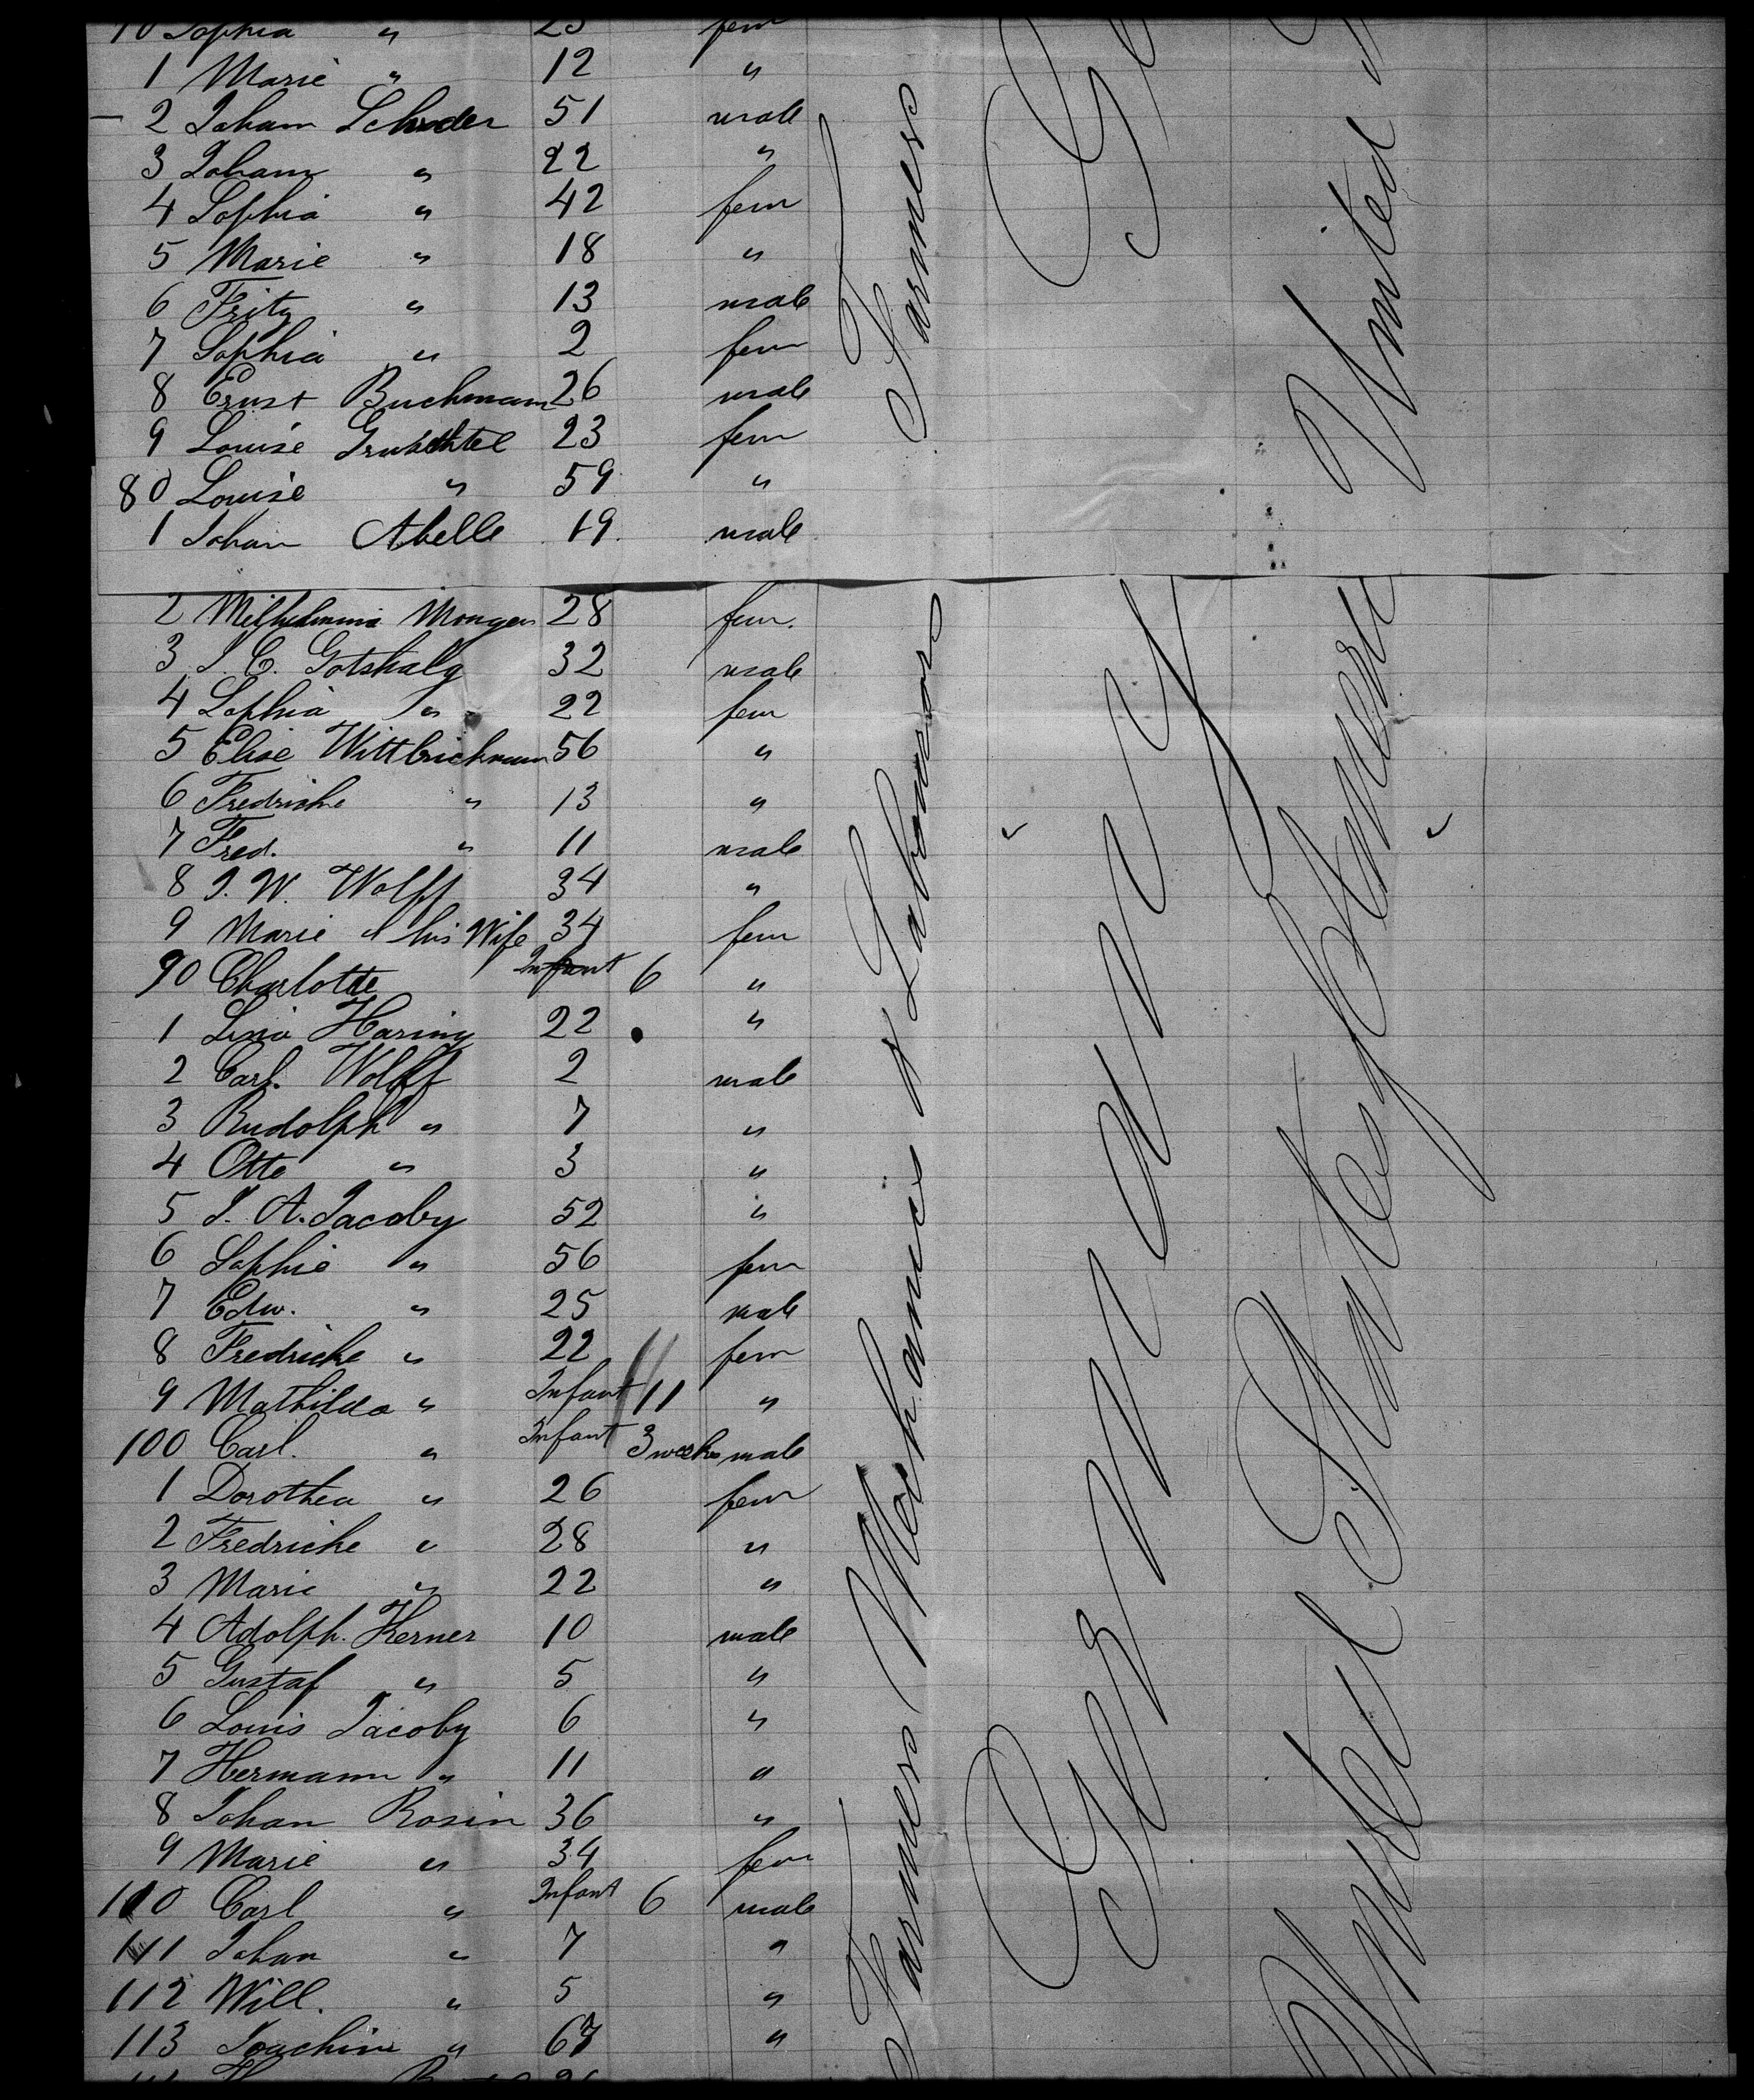 70 Sophia " 23 fem
1 Marie " 12 "
2 Joham Schroder 51 male
3 Joham " 22 "
4 Sophia " 42 fem
5 Marie " 18 "
6 Fritz " 13 male
7 Sophia " 2 fem
8 Ernst Buchmann 26 male
9 Louise 23 fem
80 Louise " 59 "
1 Johan Abelle 19 male
2 Milhelmina Mongen 28 fem.
3 J. C. Gotshalg 32 male
4 Sophia " 22 fem
5 Elise 56 "
6 Fredrishe " 13 "
7 Fred. " 11 male
8 J. W. Wolff 34 "
9 Marie his Wife 34 fem
90 Charlotte Infant 6 "
1 Lina Haring 22 "
2 Carl. Wolff 2 male
3 Rudolph " 7 "
4 Otto " 3 "
5 J. A. Jacoby 52 "
6 Sophie " 56 fem
7 Edw. " 25 male
8 Fredriche " 22 fem
9 Mathilda " Infant 11 "
100 Carl. " Infant 3 weeks male
1 Dorothea " 26 fem
2 Fredriche " 28 "
3 Marie " 22 "
4 Adolph. Kerner 10 male
5 Gustaf " 5 "
6 Louis Jacoby 6 "
7 Hermann " 11 "
8 Johan Rosin 36 "
9 Marie " 34 fem
110 Carl " Infant 6 male
111 Johan " 7 "
112 Will. " 5 "
113 Joachim " 67 "
Farmers
Ge
United
Farmers Mechanics & Labourers
Germany
United States of America